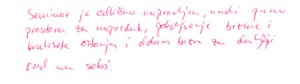 Seminar je odlično napravljen, nudi puno
prostora za napredak, poboljšanje brzine i
kvalitete čitanja i dobra baza za daljnji
rad na sebi